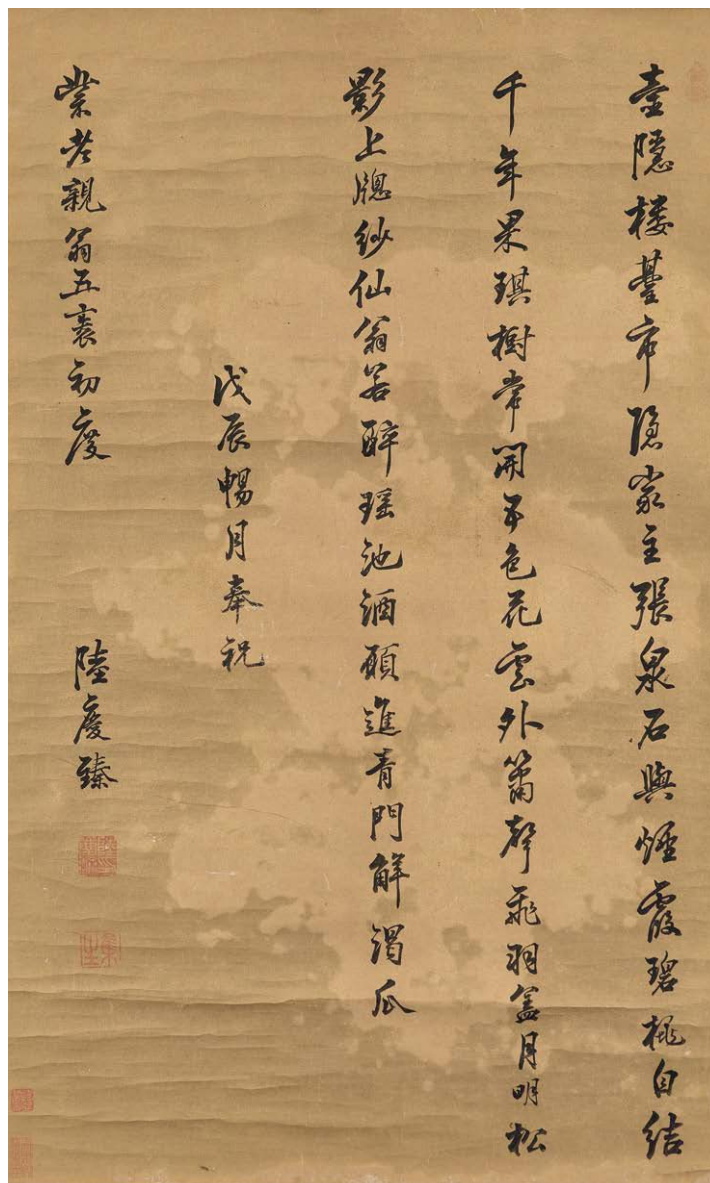 壺隱樓臺市隐家主張泉石與煙霞碧桃自結
千年果琪樹常開五色花雲外簫聲飛羽蓋月明松
影上牕紗仙翁若醉瑶池酒願進青門解渴瓜
戊辰暢月奉祝
紫老親翁五袠初度
陸慶臻